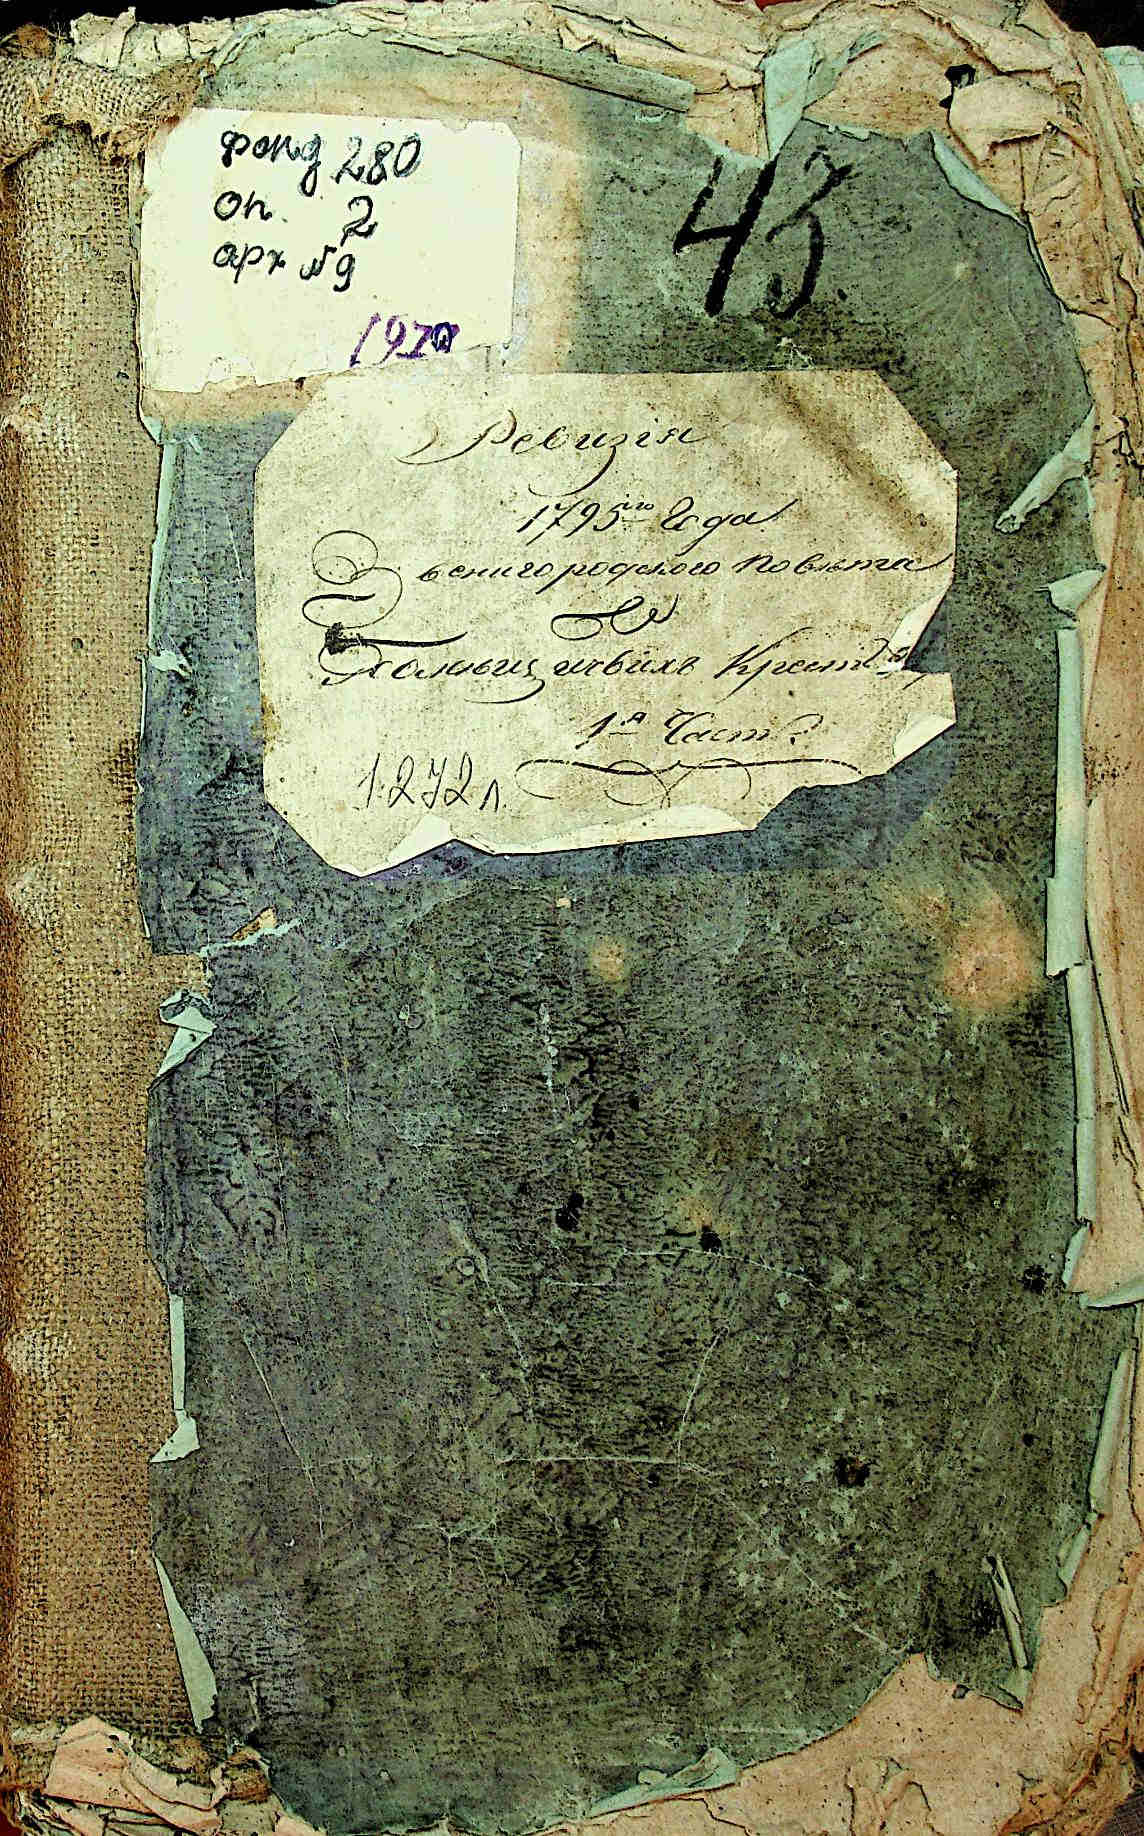 фонд 280
оп. 2
арх № 9
43
Ревизія
1795го Года
Звенигородского Повѣта
О
Помѣщичьихъ Крест
1я Част
1-272 л.